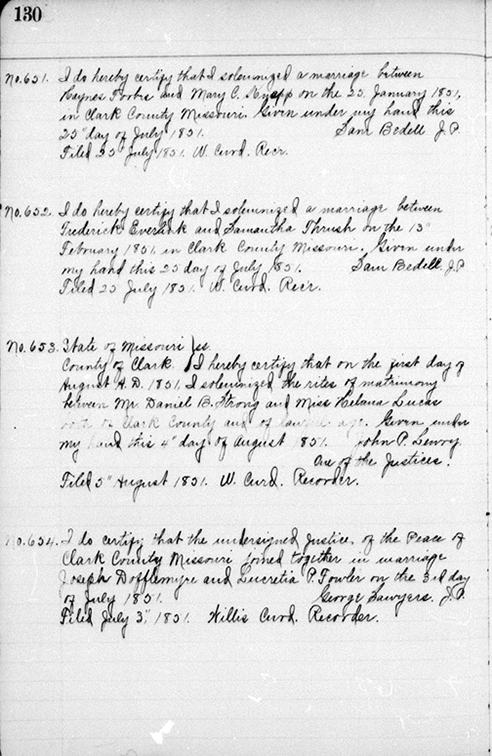 130
No. 651. I do hereby certify that I solemnized a marriage between
Haynes Forbs and Mary C. Knapp on the 23. January 1851,
in Clark County Missouri. Given under my hand this
25" day of July 1851. Sam Bedell J.P.
Filed 25 July 1851. W. Curd. Recr.
No. 652. I do hereby certify that I solemnized a marriage between
Frederick and Samantha Thrush on the 13"
February 1851. in Clark County Missouri. Given under
my hand this 25 day of July 1851. Sam Bedell. J.P.
Filed 25 July 1851. W. Curd. Recr.
No. 653. State of Missouri } ss.
County of Clark. } I hereby certify that on the first day of
August A.D. 1851, I solemnized the rites of matrimony
between Mr. Daniel B. Strong and Miss Helana Lucas
both of Clark County and of lawful age. Given under
my hand this 4" day of August 1851. John P.
One of the Justices.
Filed 5" August 1851. W. Curd. Recorder.
No. 654. I do certify that the undersigned Justice of the Peace of
Clark County Missouri joined together in marriage
Joseph Dofflemyre and Lucretia P. Fowler on the 3rd day
of July 1851. George Sawyers. J.P.
Filed July 3", 1851. Willis Curd. Recorder.